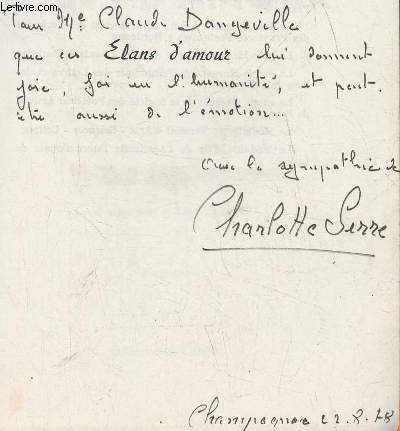 Pour Mlle Claude Dangeville
que ces Elans d'amour lui donnent
joie, foi en l'humanité, et peut-
être aussi de l'émotion...
avec la sympathie de
Charlotte Serre
Champagnac 22.8.78
www.Le-livre.com